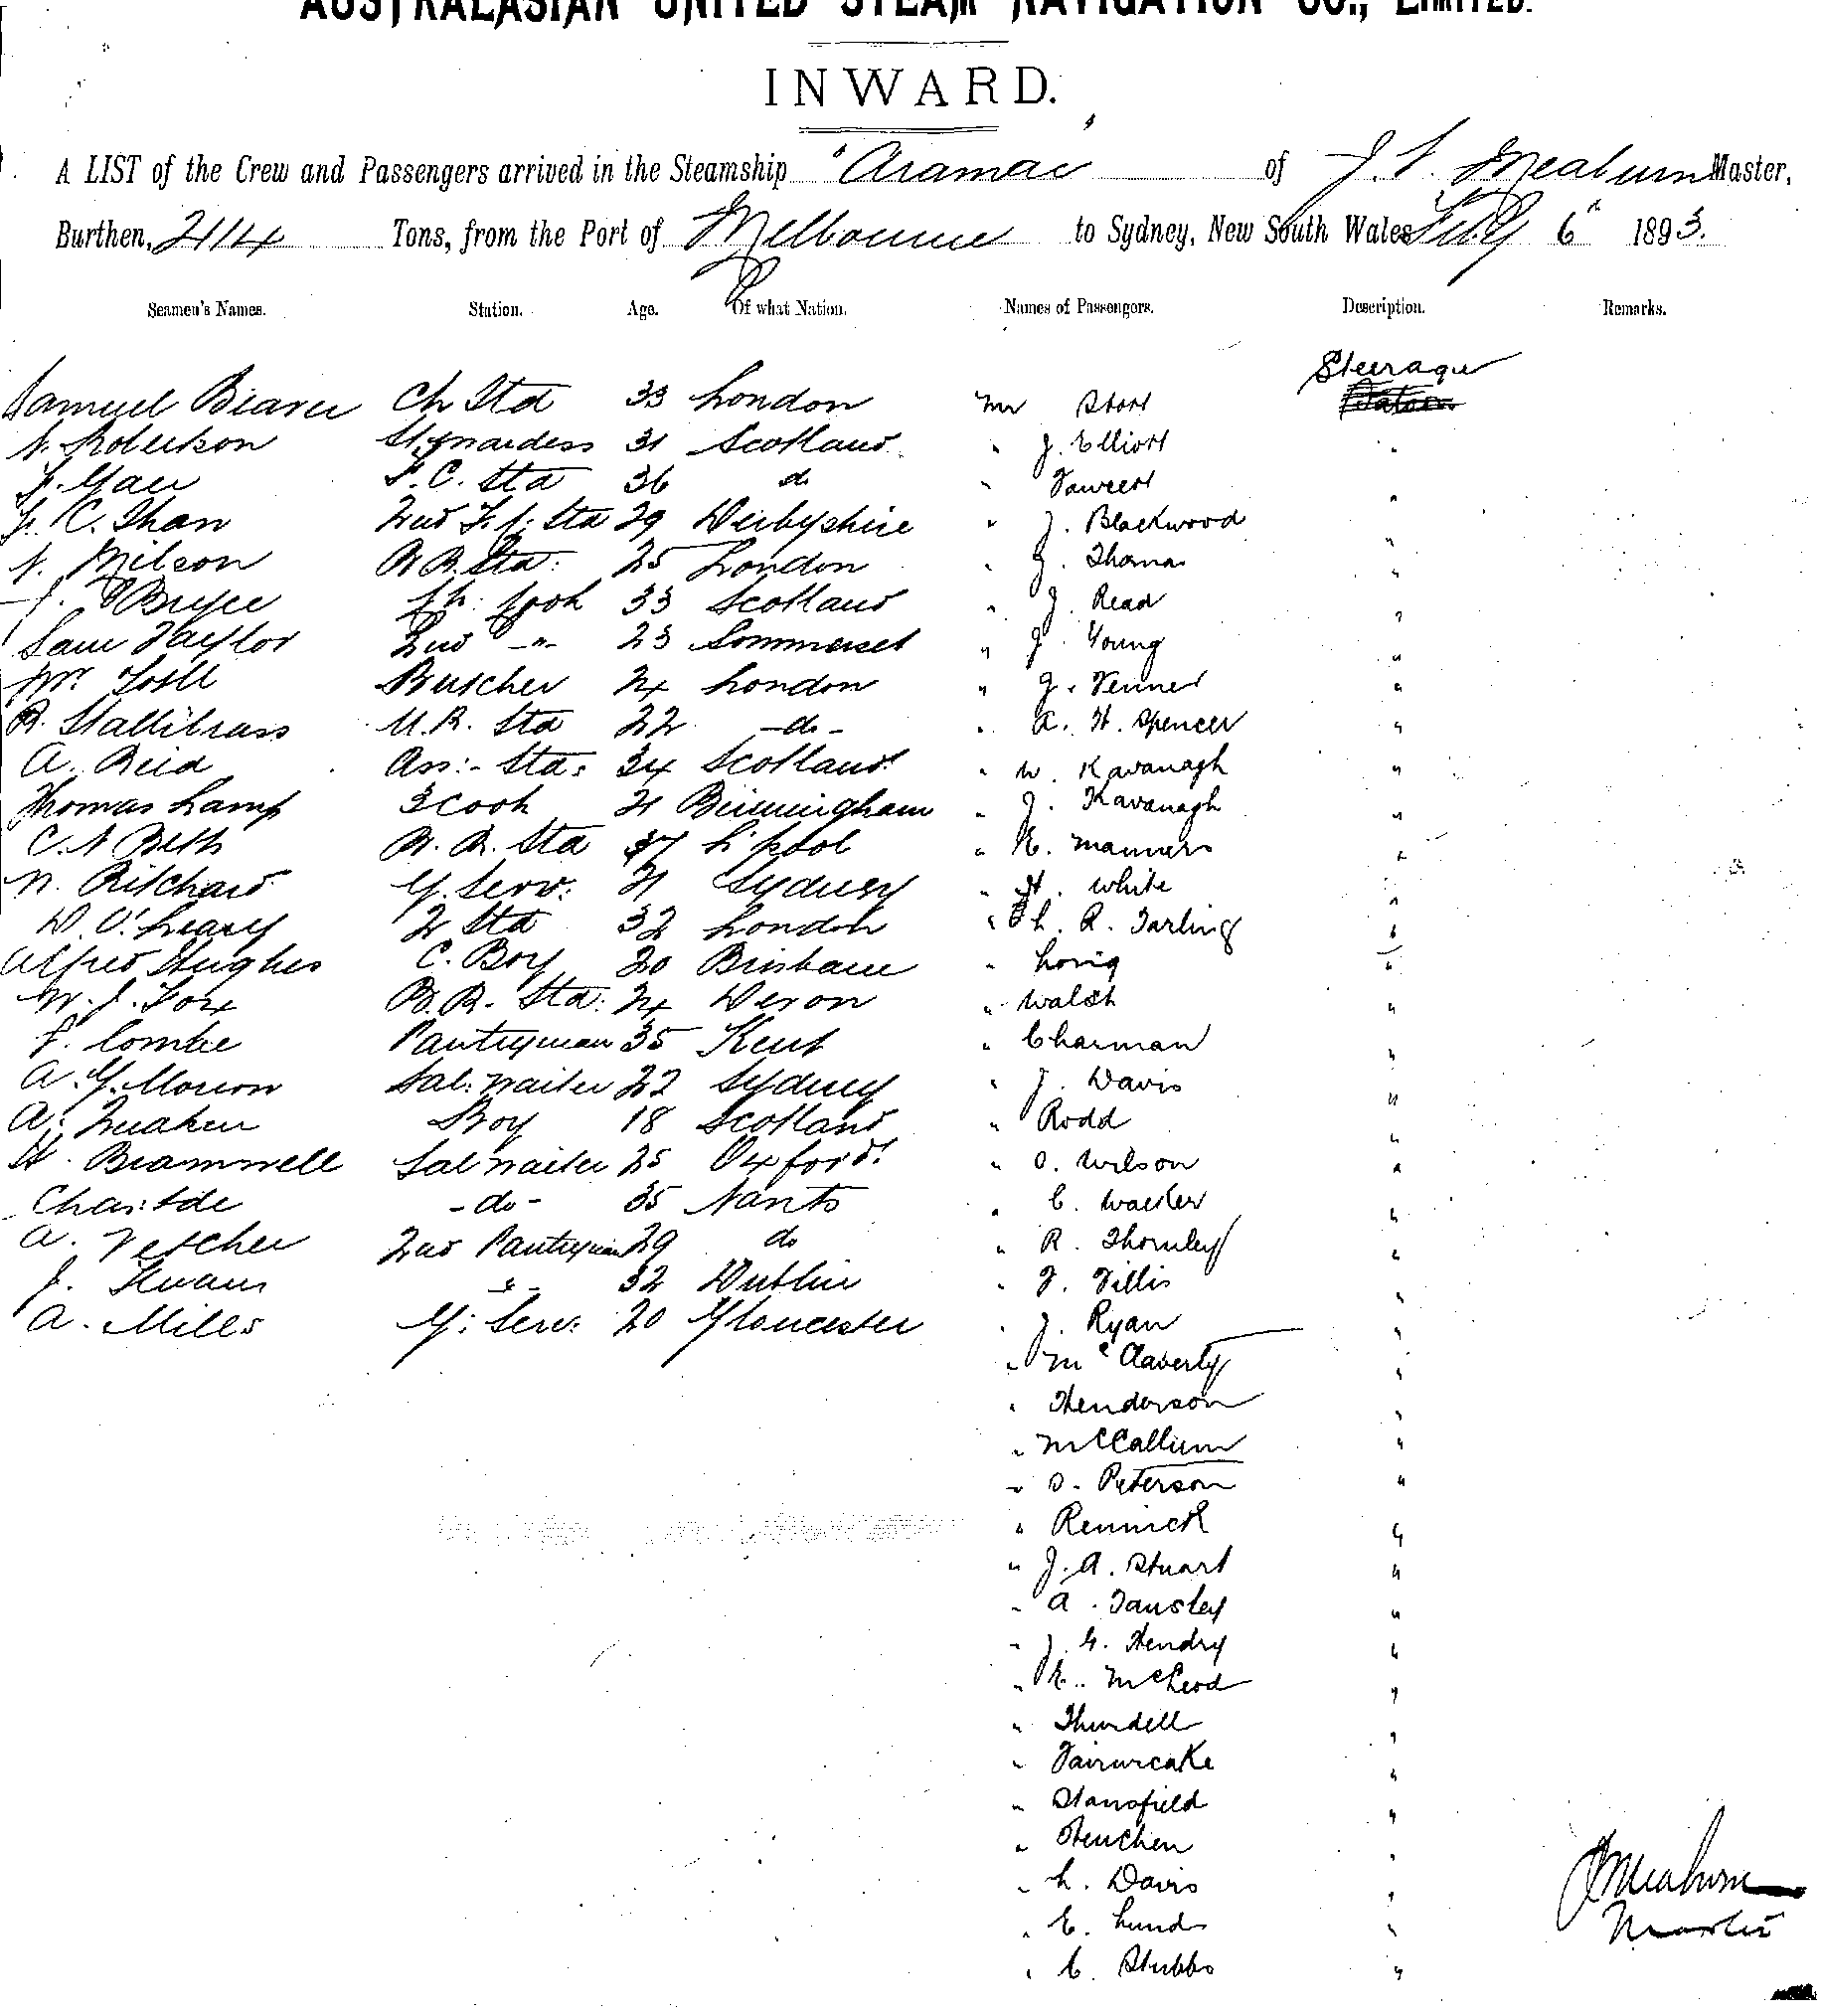 AUSTRALASIAN UNITED STEAM NAVIGATION CO., LIMITED.
INWARD.
A LIST of the Crew and Passengers arrived in the Steamship "Aramac of J. S. Meaburn Master,
Burthen, 2114 Tons, from the Port of Melbourne to Sydney, New South Wales July 6th 1893.
Seamen's Names. Station. Age. Of what Nation. Names of Passengers. Description. Remarks.
Steerage
Samuel Ch Std 33 London Mr Stort
N. Robertson Stewardess 31 Scotland " J. Elliott "
F. C. Std 36 do " Fawcett "
2nd F. C. Std 29 Derbyshire " J. Blackwood "
Std: 25 London " J. Thomas "
J. Bryce Ch: Cook 33 Scotland " J. Read "
Sam Taylor 2nd -"- 23 Sommerset " J. Young "
Wm. Butcher 24 London " J. Venner "
R. Stallibrass U.R. Std 22 -do- " A. H. Spencer "
A. Reid Ass:- Std: 34 Scotland " W. Kavanagh "
Thomas Lamp 3 Cook 21 Birmingham " J. Kavanagh "
C. A Beth B. R. Std 37 L'pool " E. Manners "
W. Ritchard G. Serv: 21 Sydney " H. White "
D. O'Leary 2 Std 32 London " Ch. R. Tarling "
Alfred Hughes C. Boy 20 Brisbane " Loing "
W. J. Fox B. R. Std: 24 Devon " Walsh "
F. Combe Pantryman 35 Kent " Charman "
A. G. Morson Sal: Waiter 22 Sydney " J. Davis "
A. Boy 18 Scotland " Rodd "
H. Bramwell Sal Waiter 25 Oxford " O. Wilson "
-do- 35 Nants " C. Walter "
A. Vetcher 2nd Pantryman 29 do " R. Thornley "
J. -"- 32 Dublin " F. Fillis "
A. Mills G: Serv: 20 Gloucester " J. Ryan "
" McClaverty "
" Henderson "
" McCallum "
" O. Peterson "
" Rennick "
" J. A. Stuart "
" A. Tansley "
" J. G. Hendry "
" E. McLeod "
" Thurdell "
" Fairweake "
" Stansfield "
" Heuchen "
" L. Davis "
" E. Lund "
" C. Stubbs "
J S Meaburn
Master